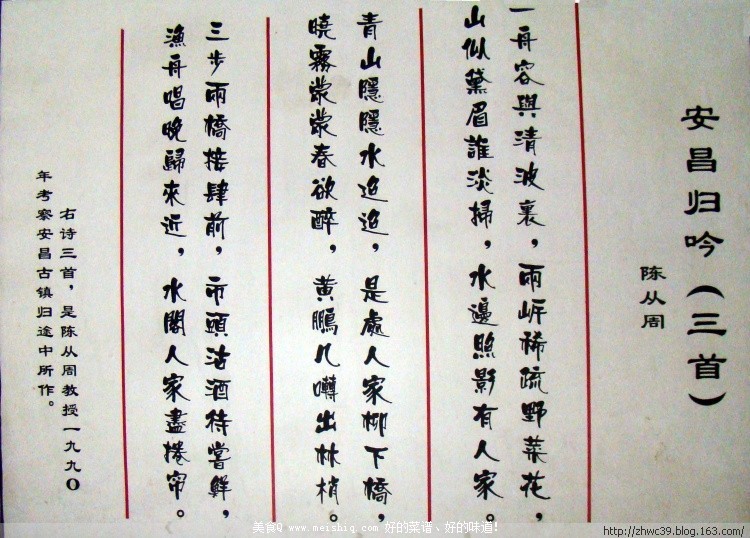 安昌归吟（三首）
陈从周
一舟容與清波裏，兩岍稀疏野菜花，
山似黛眉誰淡掃，水邊照影有人家。
青山隱隱水迢迢，是處人家柳下橋，
曉霧濛濛春欲醉，黄鵬几囀出林梢。
三步兩橋接肆前，市頭沽酒待嘗鮮，
漁舟唱晚歸來近，水閣人家盡捲帘。
右诗三首，是陈从周教授一九九〇
年考察安昌古镇归途中所作。
美食Q www.meishiq.com 好的菜谱、好的味道！
http://zhwc39.blog.163.com/